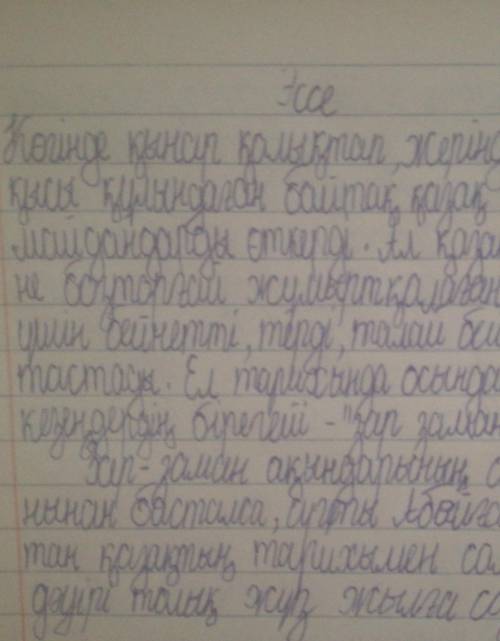 Эссе
Көгінде қыңсап қалықтап, жерінд
қысы құлындаған байтақ қазақ
майдандарды өткерді. Ал қаза
не бозторғай жұмыртқалаған
үшін бейнетті, терді, талай
тастады. Ел тарихында осында
кезеңдердің бірегейі - "зар заман
Зар-заман ақындарының
нынан басталса, арты Абайға
тан қазақтың тарихымен сал
дәуірі толық жүз жылға со